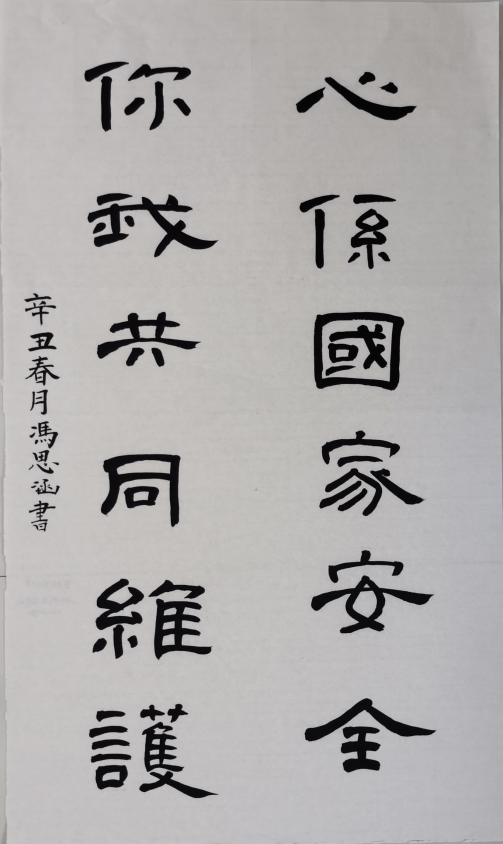 心係國家安全
你我共同維護
辛丑春月馮思涵書